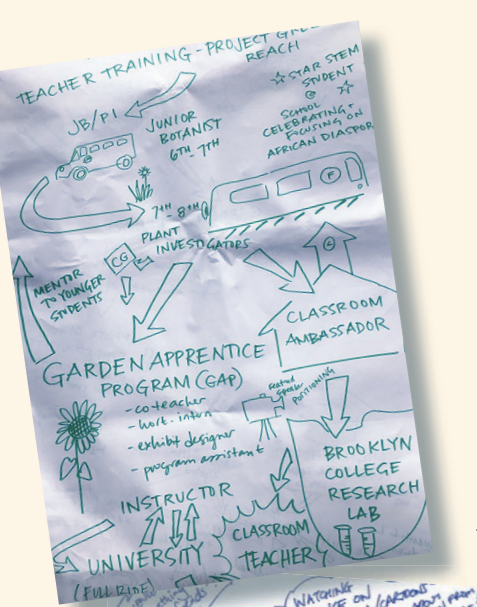 TEACHER TRAINING - PROJECT
REACH
☆ STAR STEM
STUDENT
@ ☆
SCHOOL
CELEBRATING +
FOCUSING ON
AFRICAN DIASPOR
JB/PI
JUNIOR
BOTANIST
6TH - 7TH
7TH - 8TH
PLANT
INVESTIGATORS
F
CG
G
MENTOR
TO YOUNGER
STUDENTS
CLASSROOM
AMBASSADOR
GARDEN APPRENTICE
PROGRAM (GAP)
- coteacher
- hort. intern
- exhibit designer
- program assistant
speaker
POSITIONING
BROOKLYN
COLLEGE
RESEARCH
LAB
INSTRUCTOR
CLASSROOM
TEACHER
UNIVERSITY
(FULL RIDE)
WATCHING
ON CARTOONS
FROM